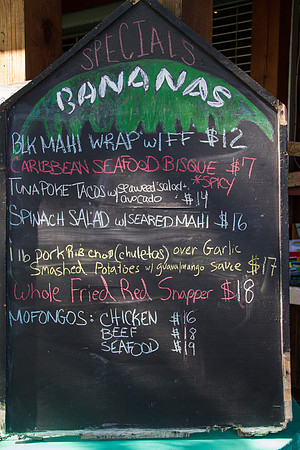 SPECIALS
BANANAS
BLK MAHI WRAP w/FF $12
CARIBBEAN SEAFOOD BISQUE $7
*SPICY
TUNA POKE TACOS w/seaweed salad + avocado $14
SPINACH SALAD w/ SEARED MAHI $16
1 lb pork Rib chop (chuletas) over Garlic
Smashed Potatoes w/ guava/mango sauce $17
Whole Fried Red Snapper $18
MOFONGOS: CHICKEN $16
BEEF $18
SEAFOOD $19